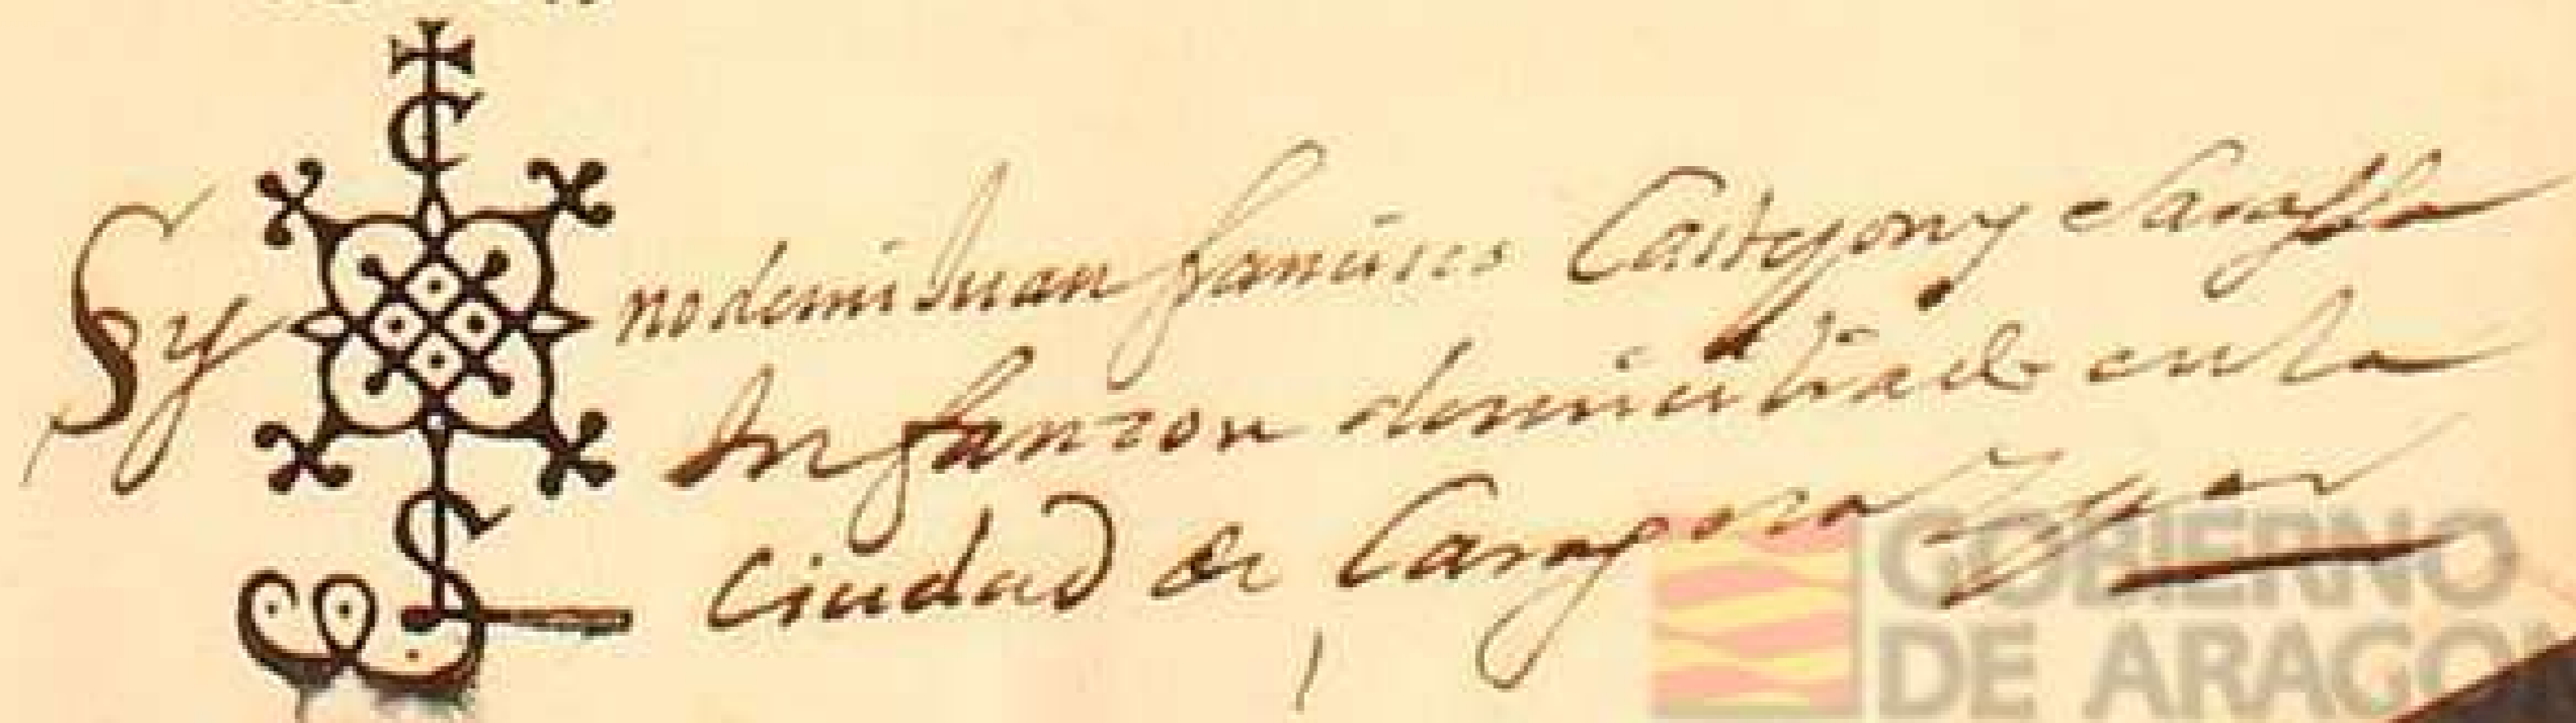 Sy no de mi Juan francisco Castejon y
Infanzon domiciliado en la
Ciudad de Caragoza y por
GOBIERNO
DE ARAGON